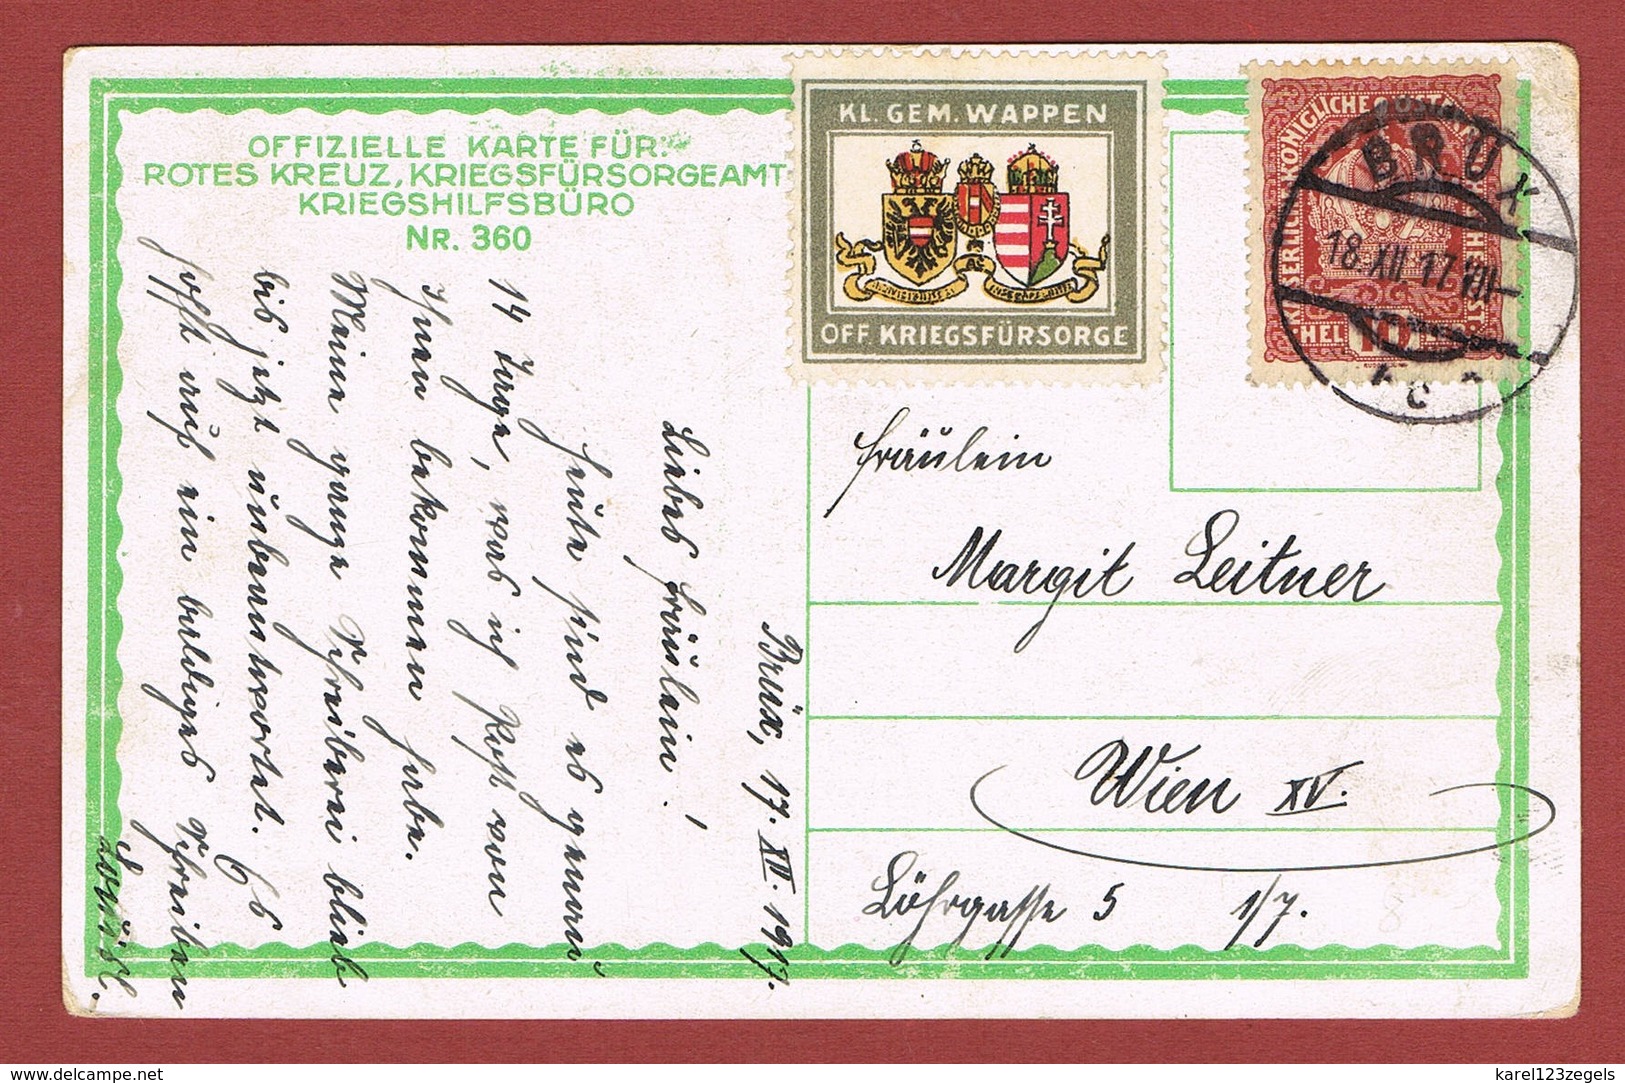 OFFIZIELLE KARTE FÜR:
ROTES KREUZ, KRIEGSFÜRSORGEAMT
KRIEGSHILFSBÜRO
NR. 360
KL. GEM. WAPPEN
OFF. KRIEGSFÜRSORGE
KAISERLICHE KÖNIGLICHE ÖSTERR
HEL 10 LER
BRÜX
18.XII.17.VIII–
c
Brüx, 17. XII. 1917.
Liebes Fräulein!
Heute sind es genau
14 Tage, was ich Post von
Ihnen bekommen habe.
Meine ganze Schreiberei blieb
bis jetzt unbeantwortet. Es
hofft auf ein baldiges Schreiben
Fräulein
Margit Leitner
Wien XV.
Löhrgasse 5 1/7.
www.delcampe.net
karel123zegels